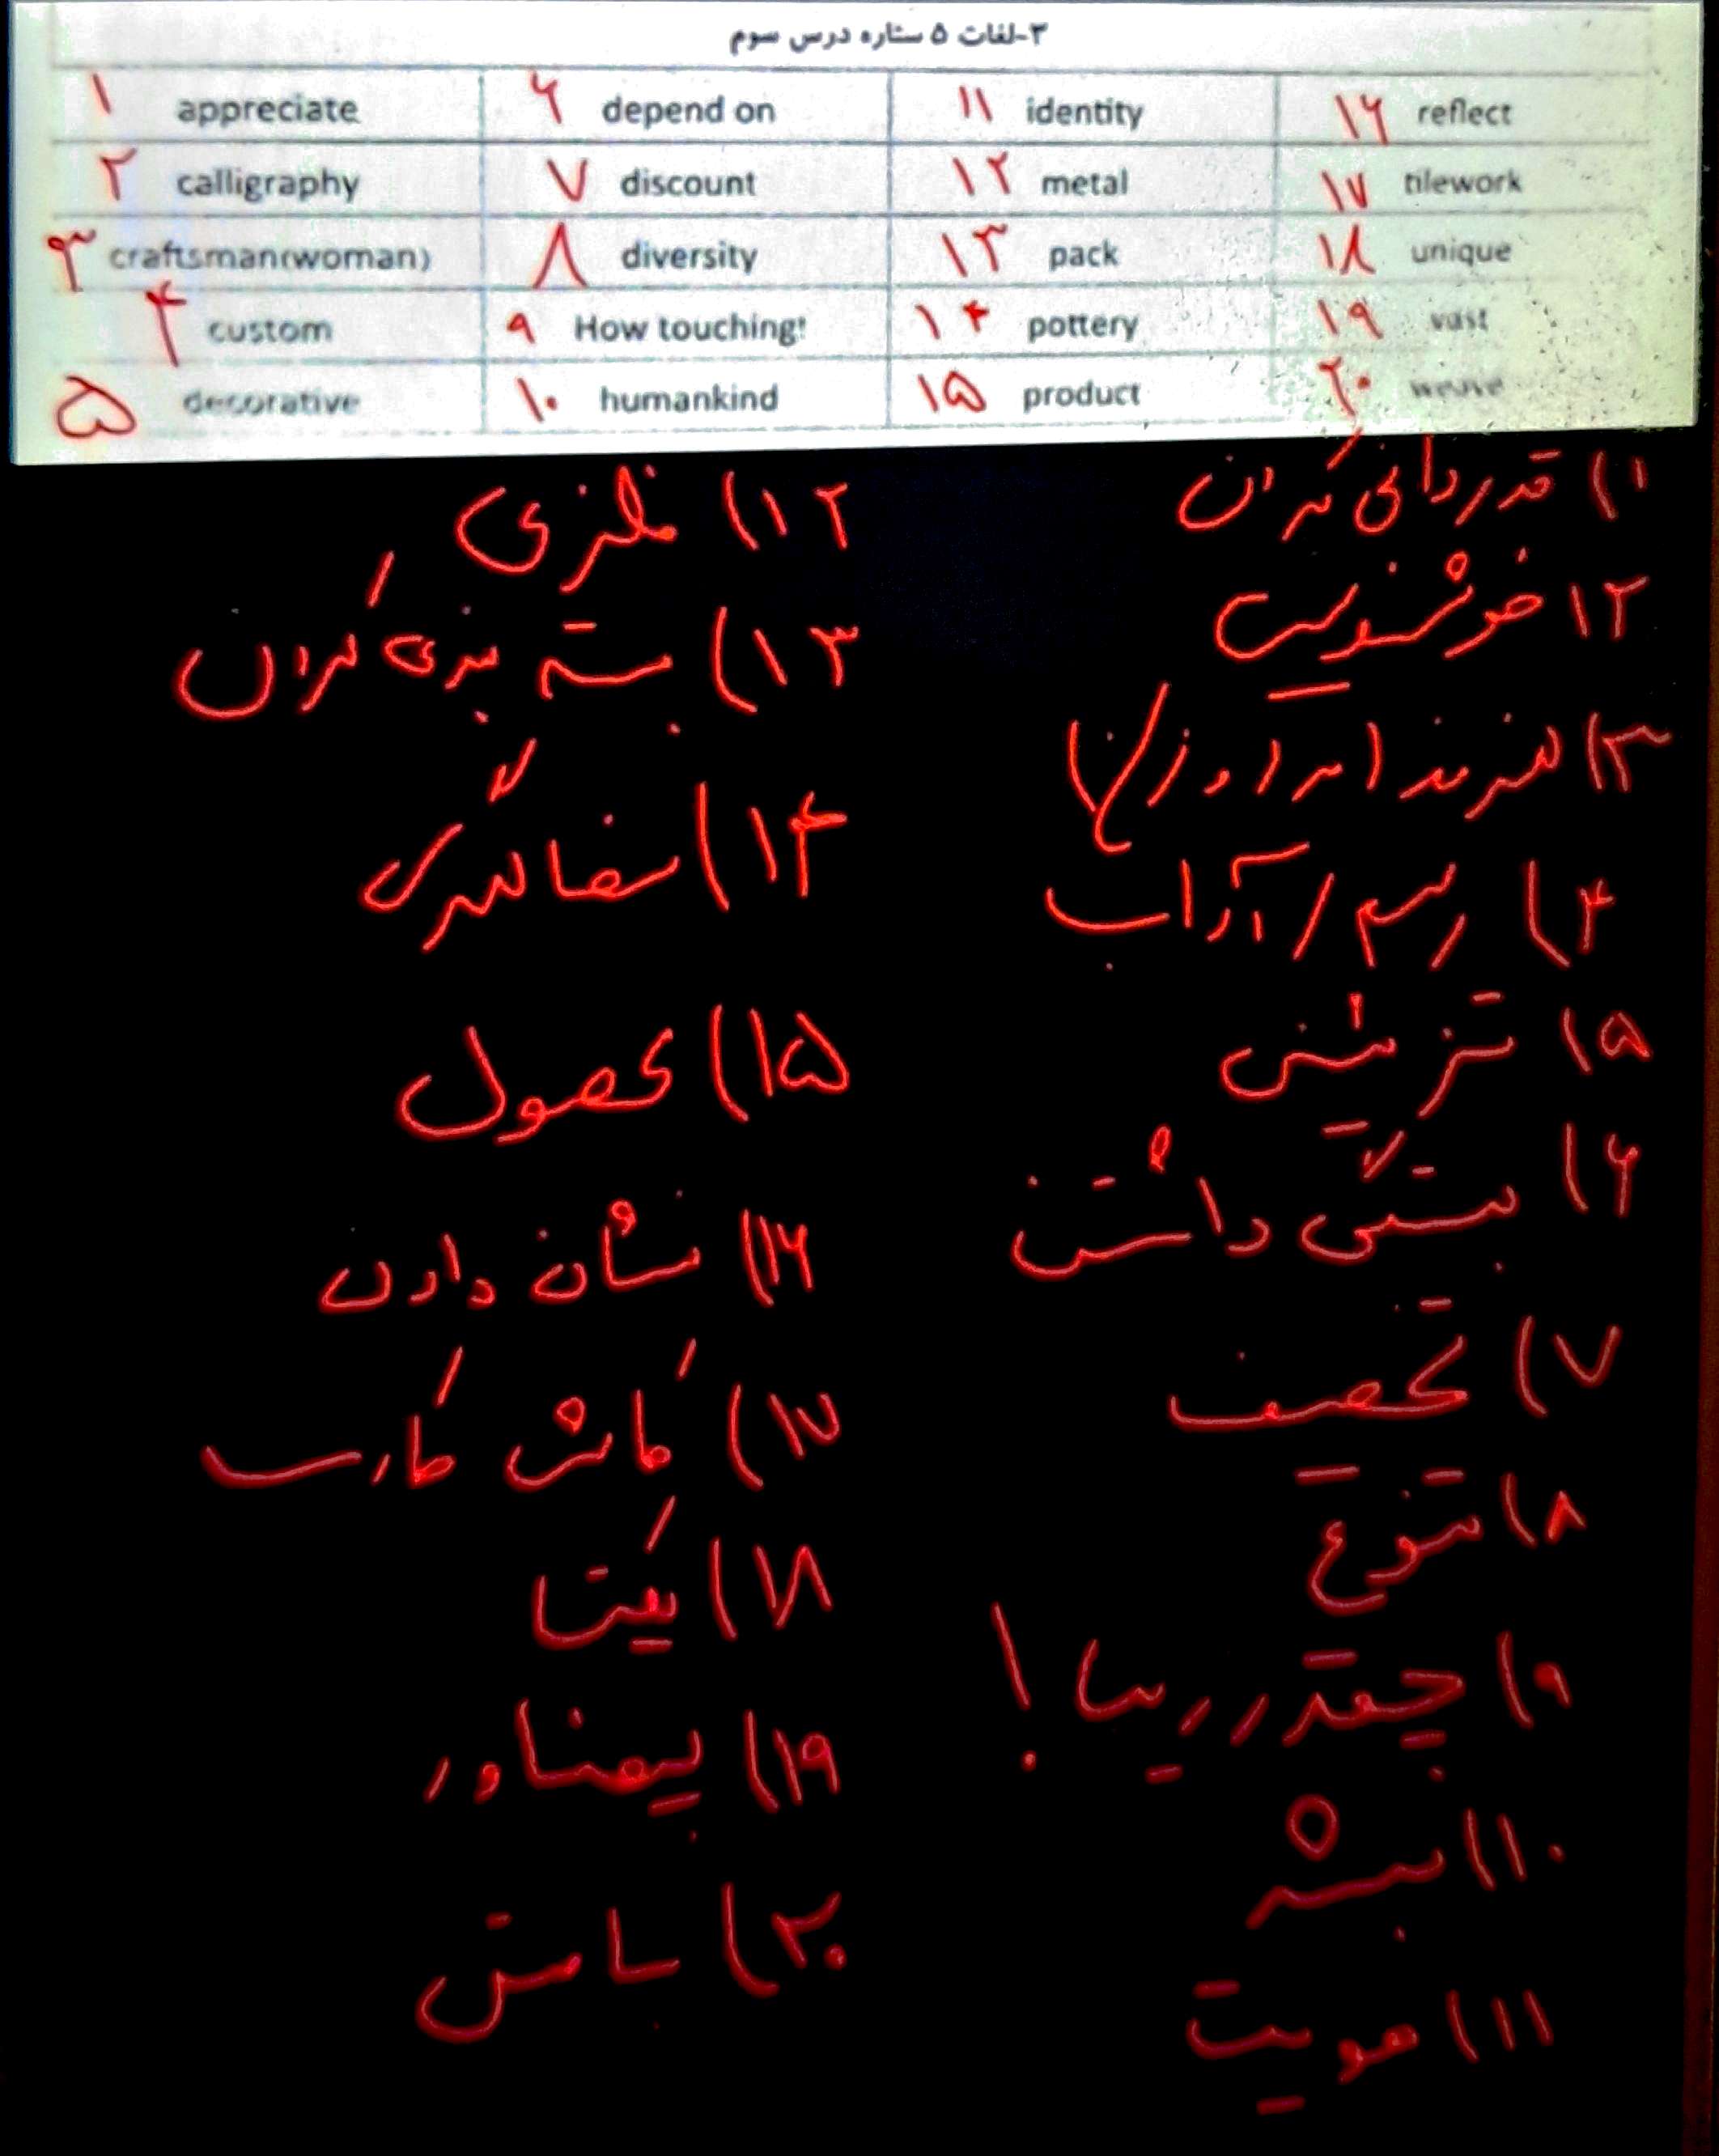 ۳-لغات ۵ ستاره درس سوم
۱ appreciate ۶ depend on ۱۱ identity ۱۶ reflect
۲ calligraphy ۷ discount ۱۲ metal ۱۷ tilework
۳ craftsman(woman) ۸ diversity ۱۳ pack ۱۸ unique
۴ custom ۹ How touching! ۱۴ pottery ۱۹ vast
۵ decorative ۱۰ humankind ۱۵ product ۲۰ weave
۱) قدردانی کردن
۲) خوشنویسی
۳) هنرمند (مرد و زن)
۴) رسم / آداب
۵) تزئینی
۶) بستگی داشتن
۷) تخفیف
۸) تنوع
۹) چقدر زیبا!
۱۰) بشر
۱۱) هویت
۱۲) فلزی
۱۳) بسته بندی کردن
۱۴) سفالگری
۱۵) محصول
۱۶) نشان دادن
۱۷) کاشی کاری
۱۸) یکتا
۱۹) پهناور
۲۰) بافتن